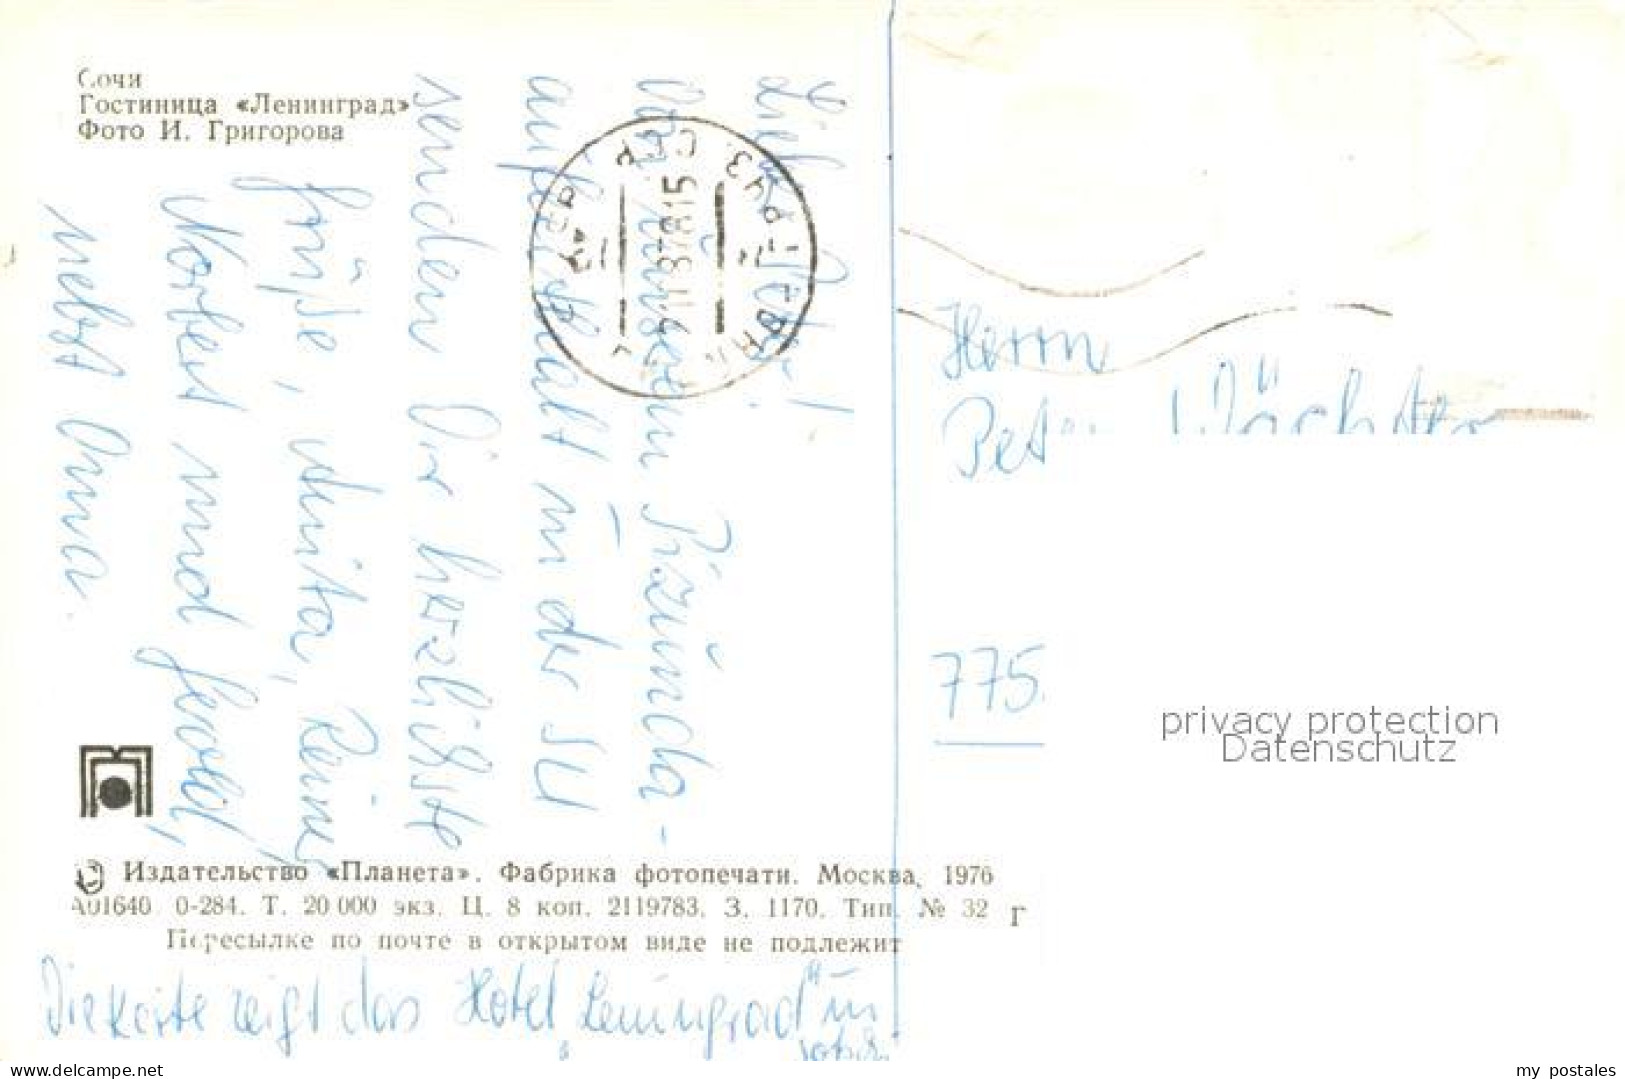 Сочи
Гостиница «Ленинград»
Фото И. Григорова
Lieber Peter!
Von unserem Pizunda-
aufenthalt in der SU
senden Dir herzlichste
Grüße, Anita, Reiner,
Norbert und
nebst Oma.
Herrn
Peter Wächter
775
privacy protection
Datenschutz
Издательство «Планета». Фабрика фотопечати. Москва, 1976
А01640 0-284. Т. 20 000 экз. Ц. 8 коп. 2119783. З. 1170. Тип. № 32 Г
Пересылке по почте в открытом виде не подлежит
Die Karte zeigt das Hotel „Leningrad" in
Sotschi
www.delcampe.net
my_postales